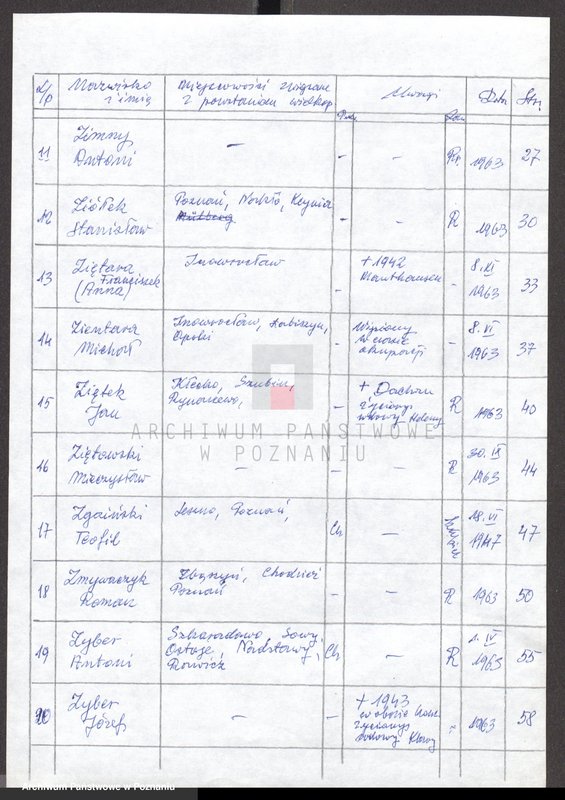 L/p Nazwisko i imię Miejscowości związane z powstaniem wielkop. Uwagi Data Str.
11 Zimny Antoni — - — Rp. 1963 27
12 Ziółek Stanisław Poznań, Kcynia - — R 1963 30
13 Ziętara Franciszek (Anna) Inowrocław - + 1942 Mauthausen - 8.XI 1963 33
14 Zientara Michał Inowrocław, Łabiszyn, - w czasie okupacji - 8.VI 1963 37
15 Ziętek Jan Kłecko, Szubin, Rynarzewo, - + Dachau życiorys wdowy Heleny R 1963 40
16 Ziętkowski Mieczysław — - — R 30.IX 1963 44
17 Zgaiński Teofil Leszno, Poznań, Ch — 18.VI 1947 47
18 Zmywaczyk Roman Zbąszyń, Chodzież Poznań - — R 1963 50
19 Zyber Antoni Ch — R 1.IV 1963 55
20 Zyber Józef — - + 1943 w obozie życiorys wdowy 1963 58
ARCHIWUM PAŃSTWOWE
W POZNANIU
Archiwum Państwowe w Poznaniu